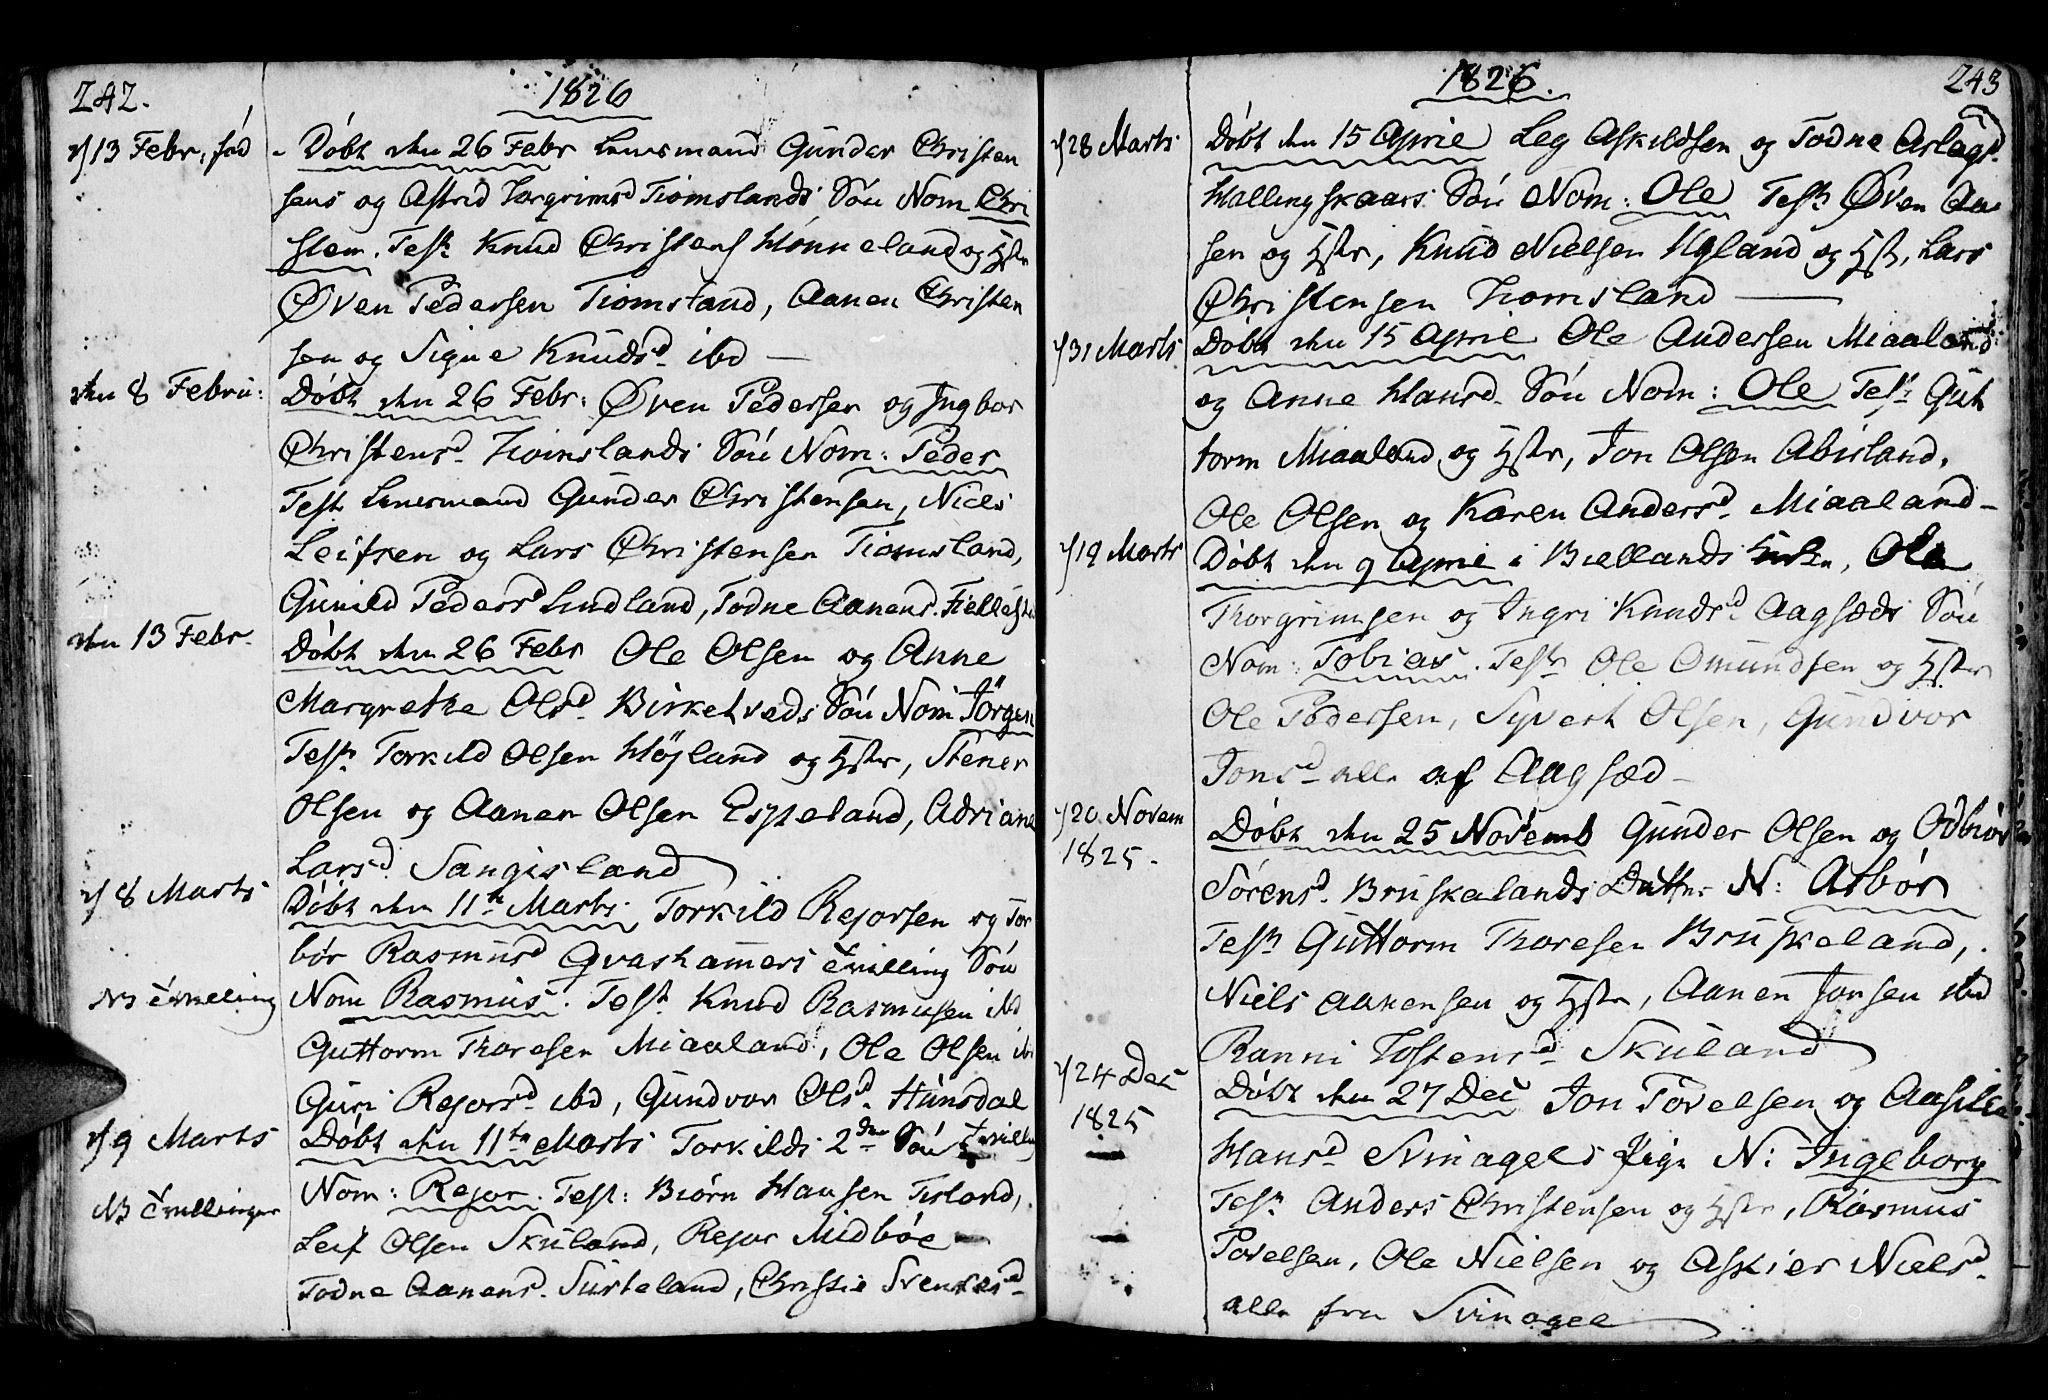 242.
1826
d 13 Febr, fød
Døbt den 26 Febr Lensmand Gunder Christen
sens og Astrid Torgrimsd Tiomslands Søn Nom Chri
sten. Test Knud Christens Hønneland og Hstr
Øven Pedersen Tiomsland, Aanen Christen
sen og Signe Knudsd ibd —
den 8 Febru:
Døbt den 26 Febr: Øven Pedersen og Ingbor
Christensd. Tiomslands Søn Nom: Peder
Test Lensmand Gunder Christensen, Niels
Leifsen og Lars Christensen Tiomsland,
Gunild Pedersd Lindland, Todne Aanens.
den 13 Febr.
Døbt den 26 Febr Ole Olsen og Anne
Margrethe Olsd. Birketveds Søn Nom Jörgen
Test. Torkild Olsen Höjland og Hstr, Stener
Olsen og Aanen Olsen Espeland, Adriane
Larsd. Sangisland
d 8 Marts
Døbt den 11te Marts. Torkild Rejorsen og Tor
bör Rasmusd Qvashamers Tvilling Søn
NB Tvilling
Nom Rasmus. Test. Knud Rasmusen ibd
Guttorm Thoresen Miaaland, Ole Olsen ibd
Guri Rejorsd ibd, Gundvor Olsd. Hunsdal
d 9 Marts
Døbt den 11te Marts Torkilds 2den Søn Tvilling
NB Tvillinger
Nom: Rejor. Test: Biørn Hansen Tisland,
Leif Olsen Skuland, Rejor Midbøe
Todne Aanensd. Surteland, Christie Svensd.
1826.
243
d 28 Marts
Døbt den 15 April Leg Askildsen og Todne Aslagsd
Hallingskaars Søn Nom: Ole Test Øven Aa
sen og Hstr, Knud Nielsen Ugland og Hst, Lars
Christensen Tiomsland —
d 31 Marts
Døbt den 15 April Ole Andersen Miaalands
og Anne Hansd. Søn Nom: Ole Test Gut
torm Miaaland og Hstr, Jon Olsen Abisland,
Ole Olsen og Karen Andersd. Miaaland —
d 19 Marts
Døbt den 9 April i Biellands Kirke, Ole
Thorgrimsen og Ingri Knudsd. Aagsæds Søn
Nom: Tobias. Test Ole Omundsen og Hstr
Ole Pedersen, Syvert Olsen, Gundvor
Jonsd alle af Aagsæd —
d 20 Novem
1825.
Døbt den 25 Novemb Gunder Olsen og Odbiør
Sörensd. Bruskelands Datter N: Asbør
Test Guttorm Thoresen Bruskeland,
Niels Aanensen og Hstr, Aanen Jonsen ibd
Ranni Tostensd Skuland
d 24 Dec
1825
Døbt den 27 Dec Jon Povelsen og Aasille
Hansd Svinagels Pige N: Ingeborg
Test Anders Christensen og Hstr, Rasmus
Povelsen, Ole Nielsen og Askier Nielsd.
alle fra Svinagel